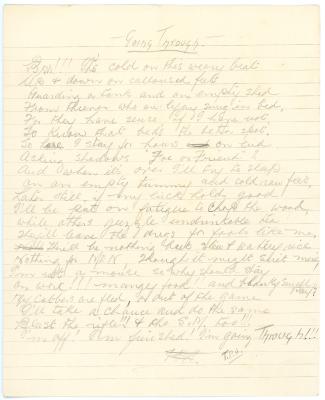 - Going Through -
Brr!!! It's cold on this weary beat
Up & down on calloused feet
Guarding tents and an empty shed
From thieves who are lying snug in bed.
For they have sense if I have not,
To know that bed's the better spot.
So here I stay for hours on end
Asking shadows "Foe or Friend"?
And when it's over I'll try to sleep
on an empty tummy and cold raw feet,
Later still, if my luck holds good
I'll be put on fatigue to chop the wood,
while others guzzle
They'll leave the for fools like me,
There'll be nothing but stew & watery rice
Nothing for though it might suit mice
I'm not a mouse so why should I stay
on work!!! mangey food!! and
My cobbers are fled, & out of the game
I'll take a chance and do the same
Blast the rifle!! & the too!!!
I'm off! I'm finished! I'm going Through!!!